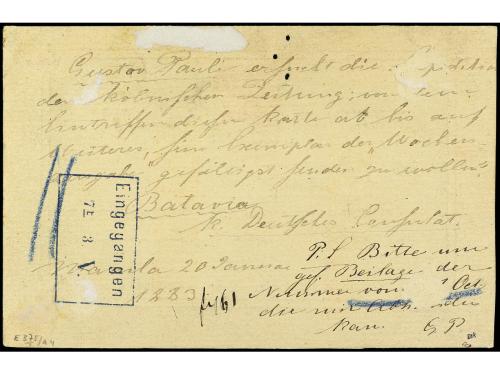 Gustav Pauli ersucht die Expedition
der Kölnischen Zeitung, vom
Eintreffen dieser Karte ab bis auf
Weiteres, sein Exemplar der Wochen-
ausgabe gefälligst senden zu wollen
Batavia
K. Deutsches Consulat.
Manila 20 Januar
1883
P.S Bitte um
gef. Beilage der
Nummer vom 1 Oct.
die
kam. G P
Eingegangen
7 E 3 V.
E 375